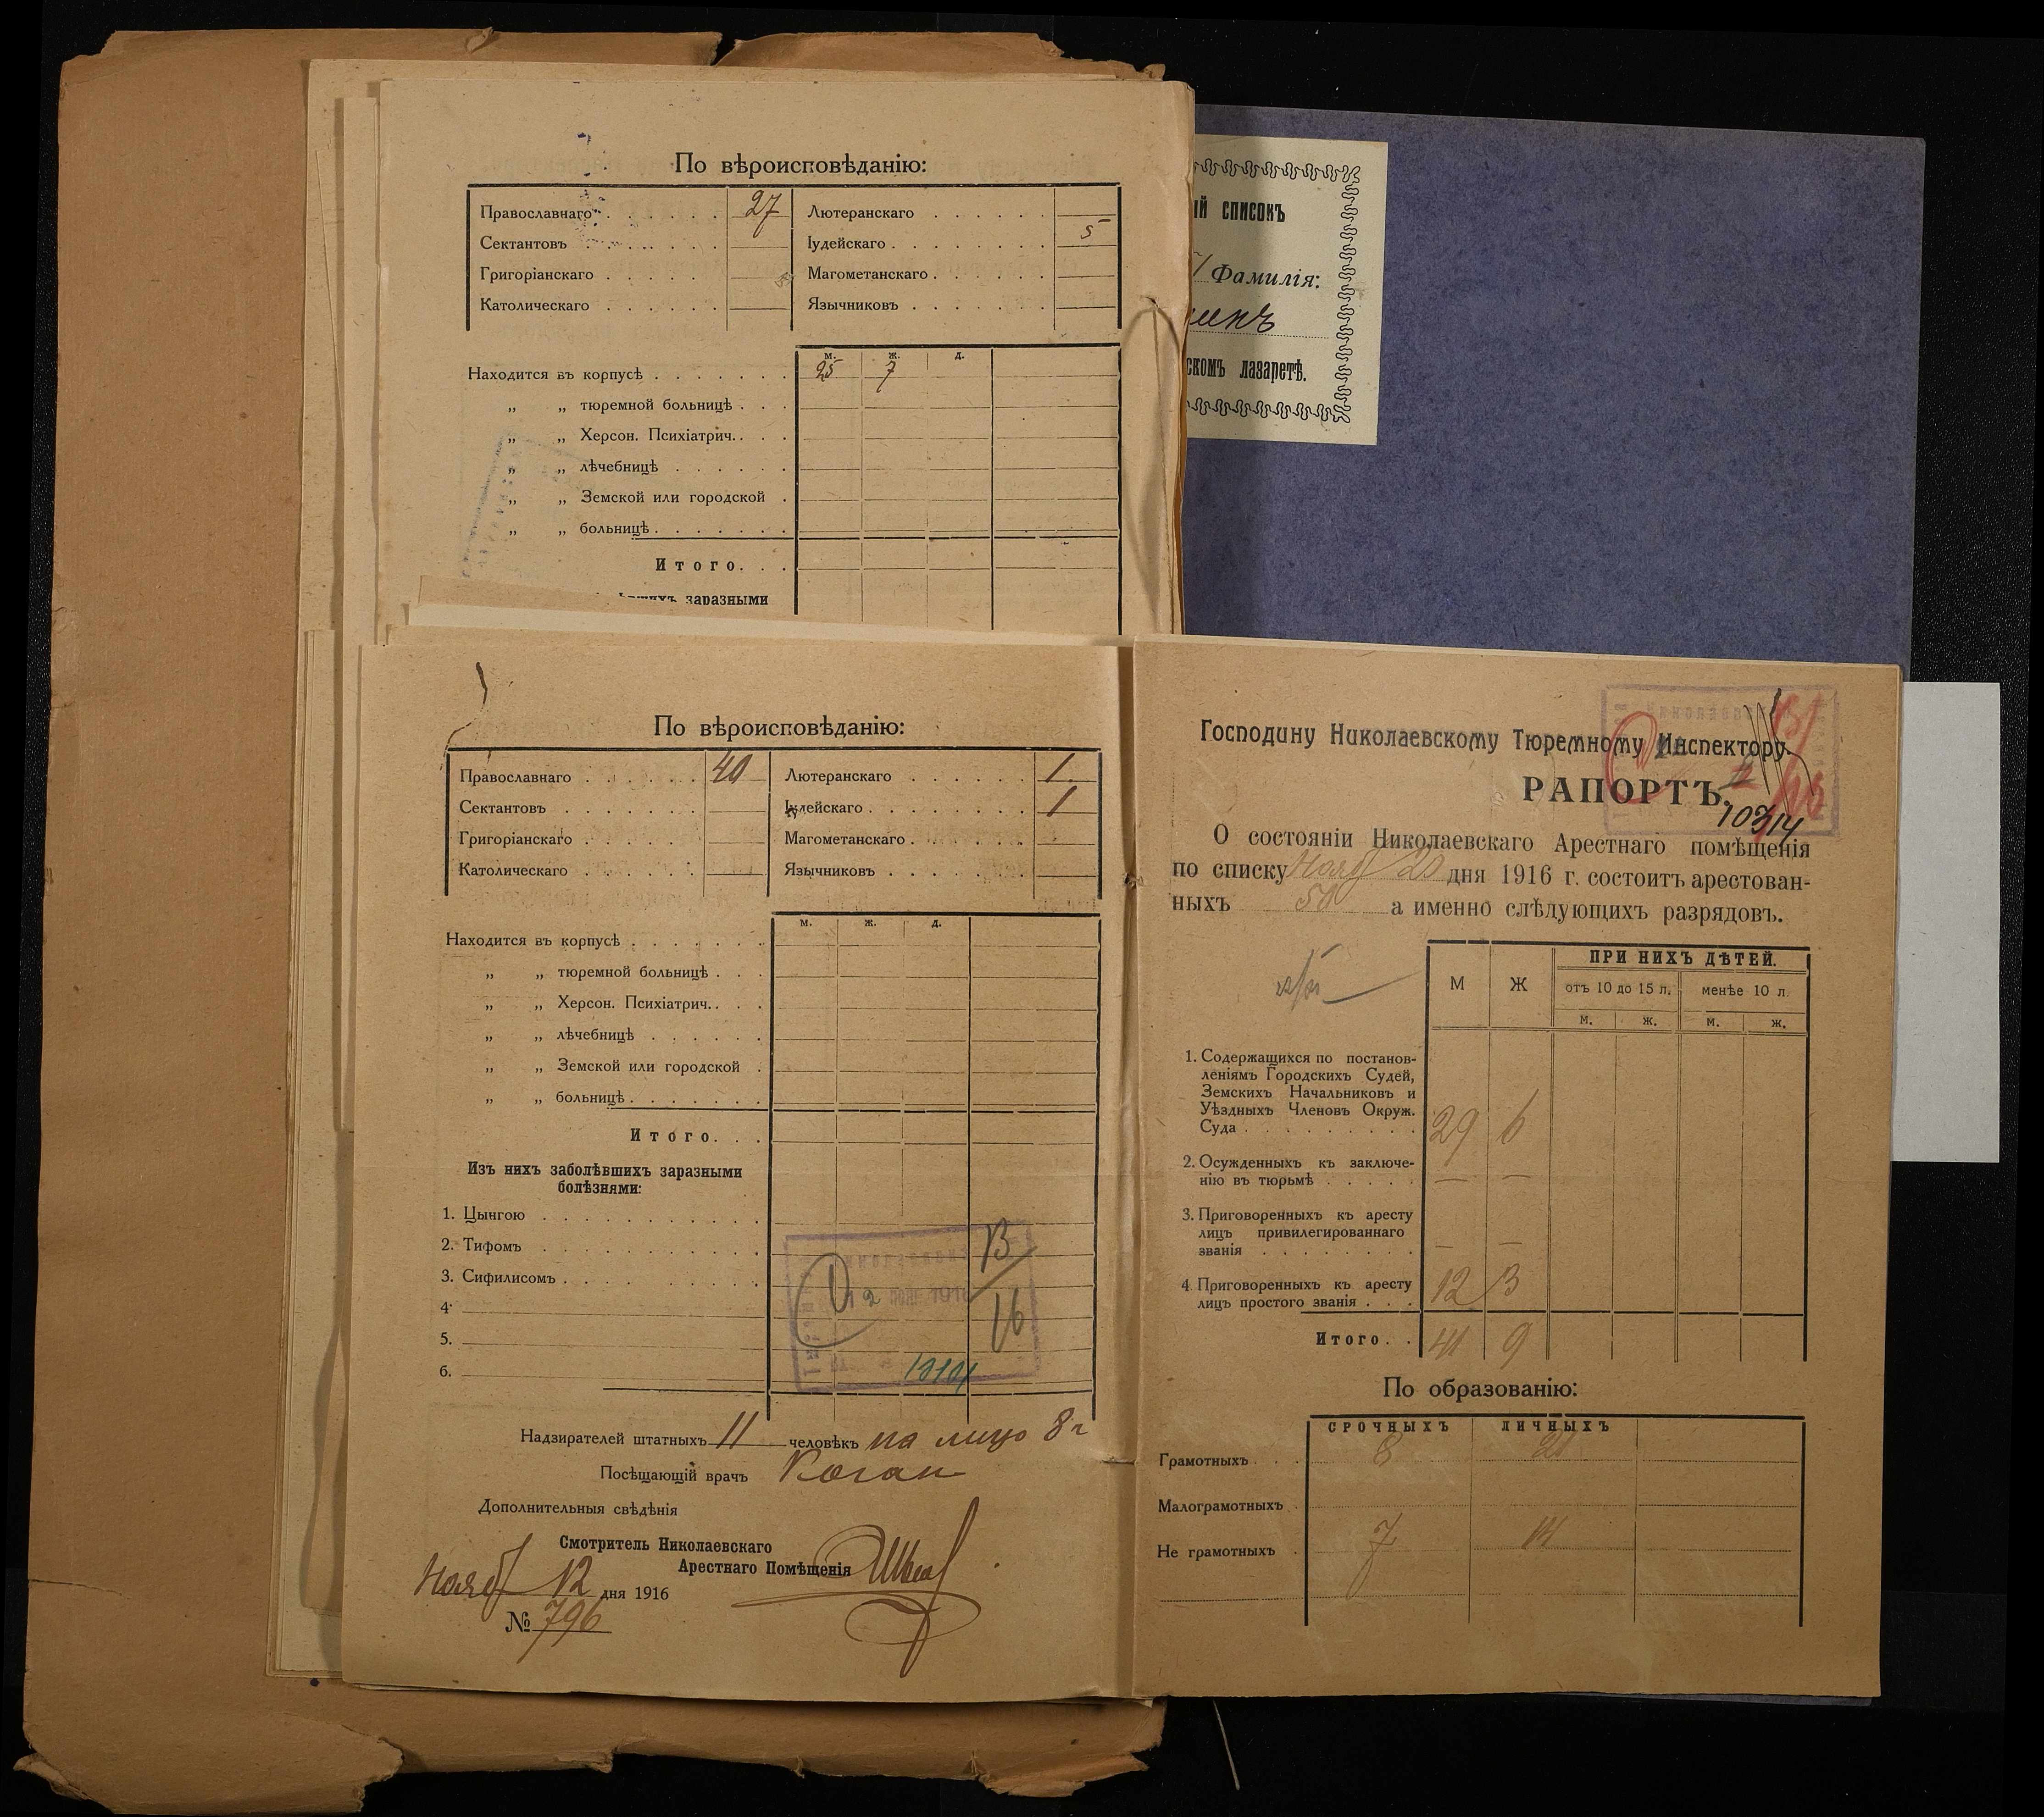 По вѣроисповѣданію:
Православнаго . . . . . . 27 Лютеранскаго . . . . . .
Сектантовъ . . . . . . Іудейскаго . . . . . . . . 5
Григоріанскаго . . . . . Магометанскаго . . . . . .
Католическаго . . . . . . Язычниковъ . . . . . . .
м. ж. д.
Находится въ корпусѣ . . . . . . . 25 7
„ „ тюремной больницѣ . . .
„ „ Херсон. Психіатрич. . . .
„ „ лѣчебницѣ . . . . . .
„ „ Земской или городской .
„ „ больницѣ . . . . . . .
Итого. . .
заразными
ый списокъ
Фамилія:
скомъ лазаретѣ.
По вѣроисповѣданію:
Православнаго . . . . . . 40 Лютеранскаго . . . . . . 1
Сектантовъ . . . . . . . Іудейскаго . . . . . . . . 1
Григоріанскаго . . . . . Магометанскаго . . . . . .
Католическаго . . . . . . Язычниковъ . . . . . . .
м. ж. д.
Находится въ корпусѣ . . . . . . .
„ „ тюремной больницѣ . . .
„ „ Херсон. Психіатрич. . . .
„ „ лѣчебницѣ . . . . . .
„ „ Земской или городской .
„ „ больницѣ . . . . . . .
Итого. . .
Изъ нихъ заболѣвшихъ заразными
болѣзнями:
1. Цынгою . . . . . . . . . . .
2. Тифомъ . . . . . . . . . . .
3. Сифилисомъ . . . . . . . . .
4.
5.
6.
Надзирателей штатныхъ 11 человѣкъ на лицо 8
Посѣщающій врачъ Коган
Дополнительныя свѣдѣнія
Смотритель Николаевскаго
Арестнаго Помѣщенія
Нояб 12 дня 1916
№ 796
Господину Николаевскому Тюремному Инспектору.
РАПОРТЪ.
10314
О состояніи Николаевскаго Арестнаго помѣщенія
по списку Нояб 20 дня 1916 г. состоитъ арестован-
ныхъ 50 а именно слѣдующихъ разрядовъ.
М Ж ПРИ НИХЪ ДѢТЕЙ.
отъ 10 до 15 л. менѣе 10 л.
м. ж. м. ж.
1. Содержащихся по постанов-
леніямъ Городскихъ Судей,
Земскихъ Начальниковъ и
Уѣздныхъ Членовъ Окруж.
Суда . . . . . . . . . 29 6
2. Осужденныхъ къ заключе-
нію въ тюрьмѣ . . . . . — —
3. Приговоренныхъ къ аресту
лицъ привилегированнаго
званія . . . . . . . . — —
4. Приговоренныхъ къ аресту
лицъ простого званія . . . 12 3
Итого. . 41 9
По образованію:
СРОЧНЫХЪ ЛИЧНЫХЪ
Грамотныхъ . . . 8 21
Малограмотныхъ .
Не грамотныхъ . 7 14